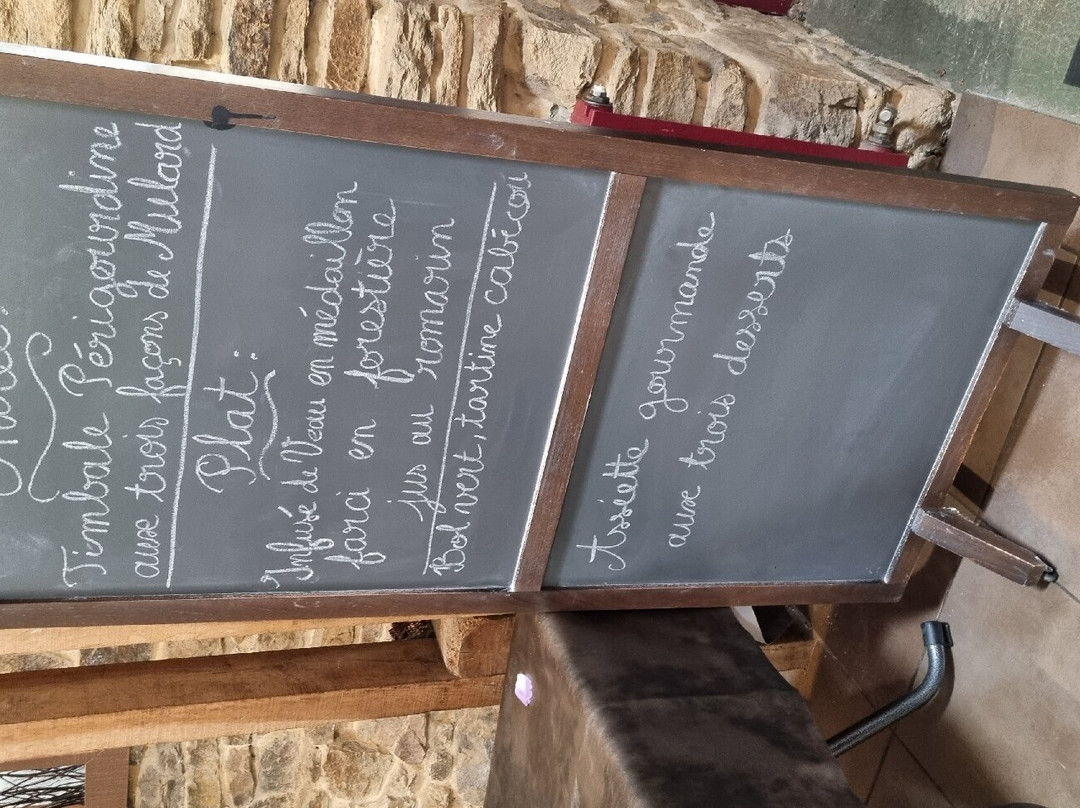 Timbale Périgourdine
aux trois façons de Mulard
Plat :
Infusé de Veau en médaillon
farci en forestière
jus au romarin
Bol vert, tartine cabécou
Assiette gourmande
aux trois desserts